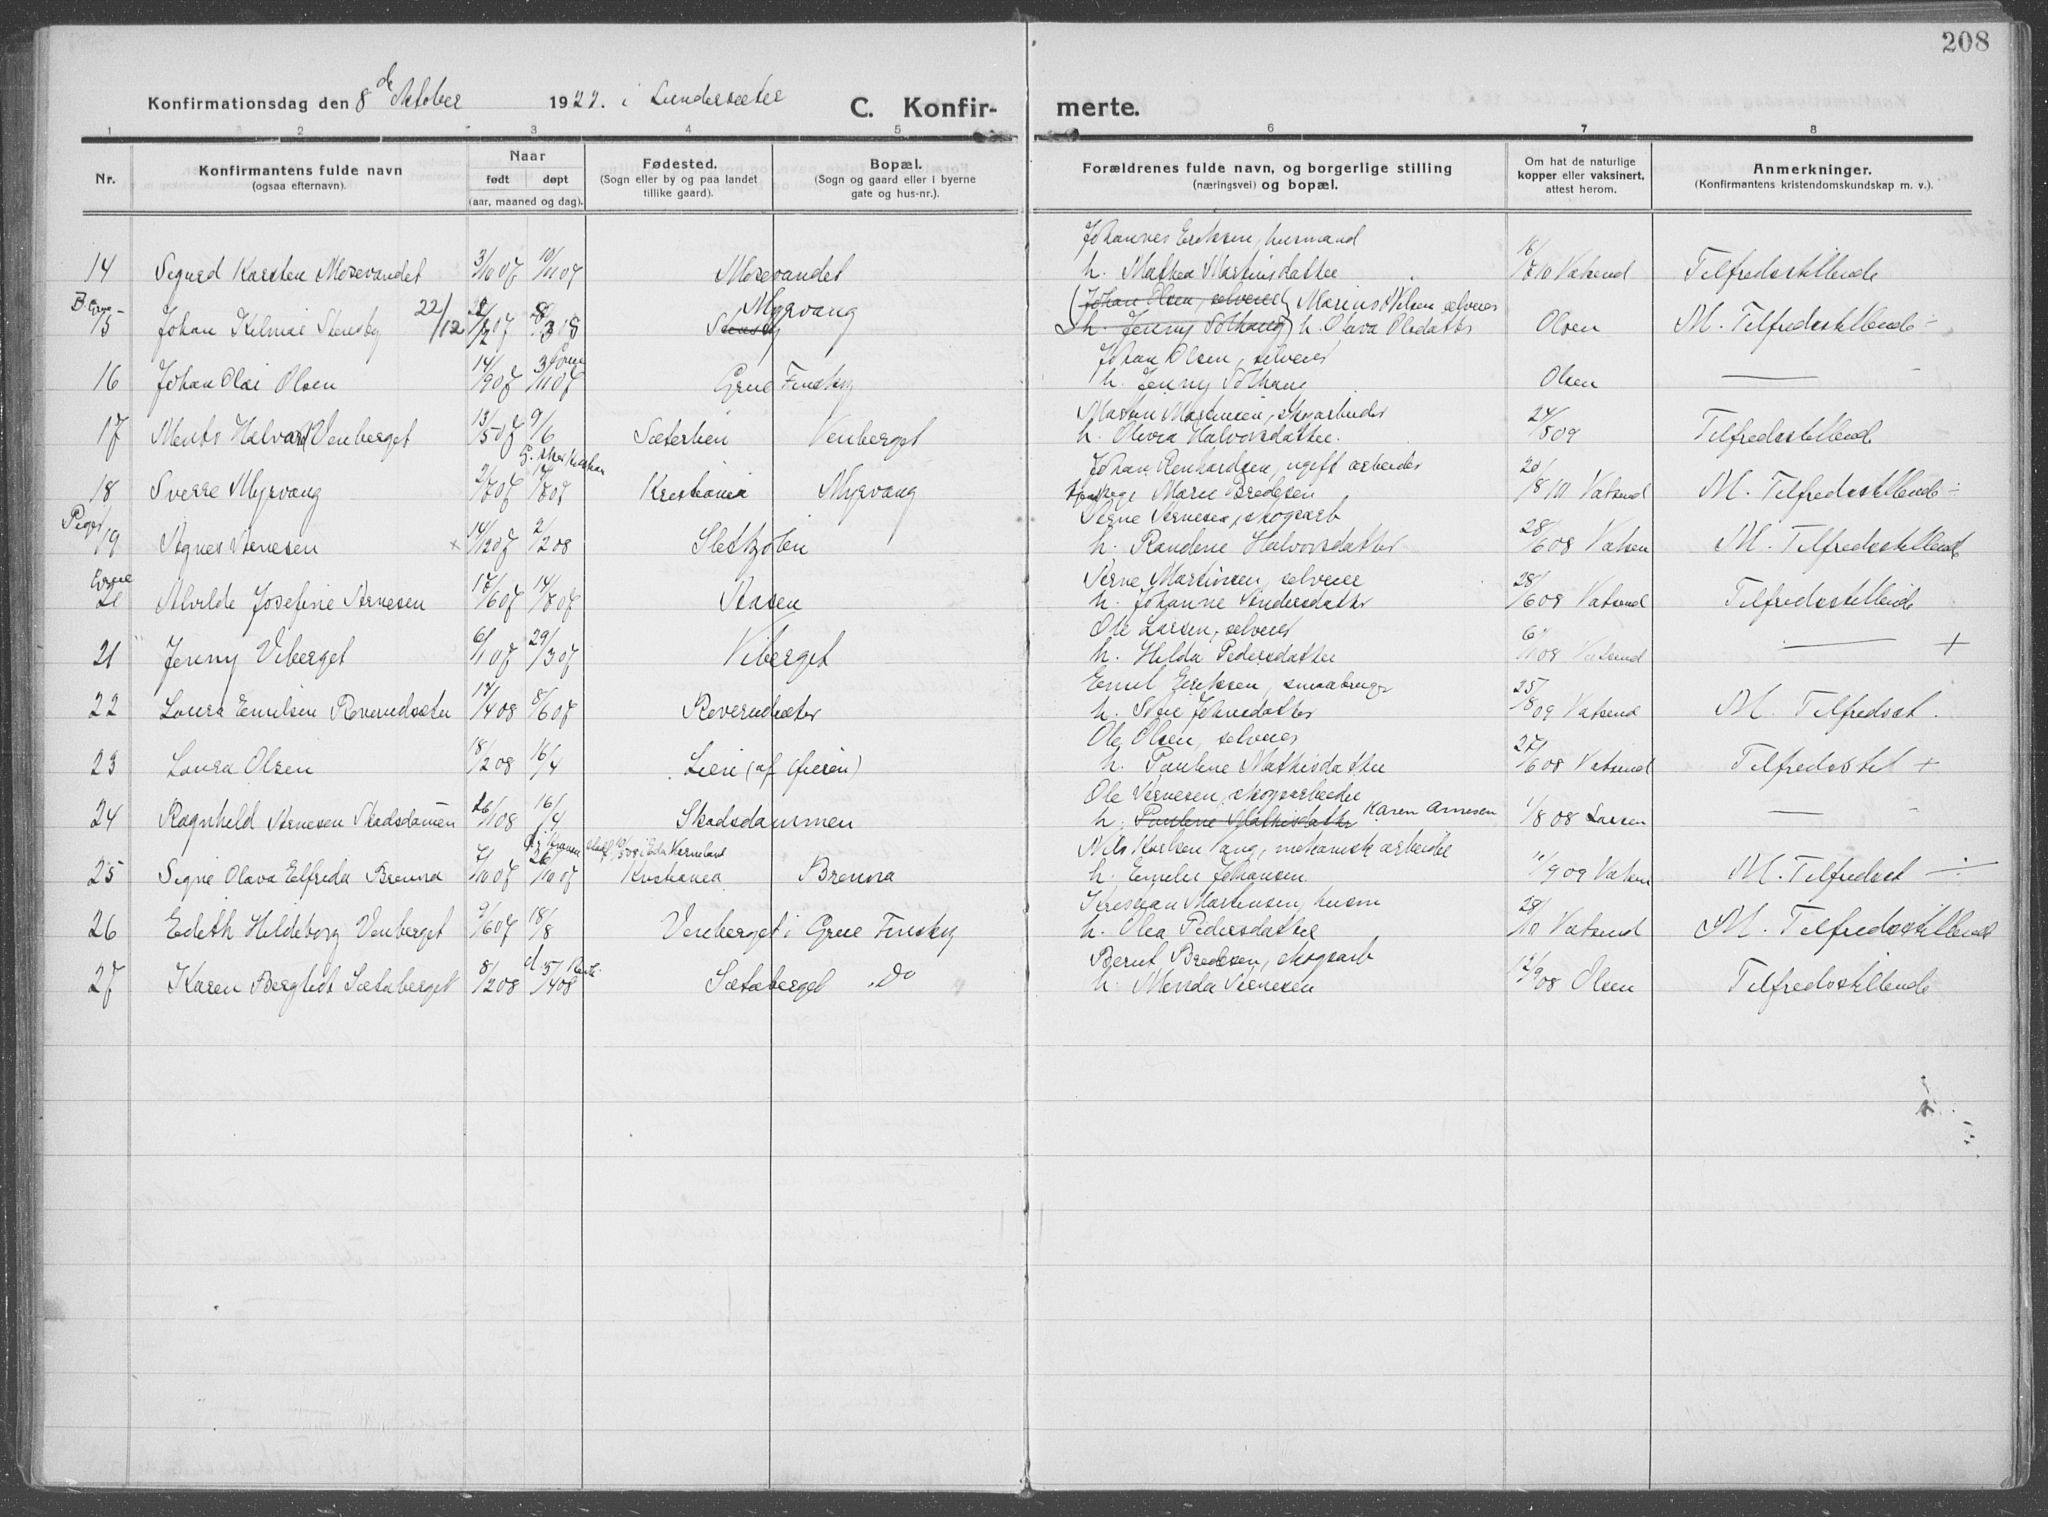 208
Konfirmationsdag den 8de Oktober 1922. i Lundersæter
C. Konfirmerte.
1 2 3 4 5 6 7 8
Nr.
Konfirmantens fulde navn
(ogsaa efternavn).
Naar
født døpt
(aar, maaned og dag).
Fødested.
(Sogn eller by og paa landet
tillike gaard).
Bopæl.
(Sogn og gaard eller i byerne
gate og hus-nr.).
Forældrenes fulde navn, og borgerlige stilling
(næringsvei) og bopæl.
Om hat de naturlige
kopper eller vaksinert,
attest herom.
Anmerkninger.
(Konfirmantens kristendomskundskap m. v.).
Johannes Eriksen, husmand
14 Sigurd Karsten Mosevandet 3/10 07 10/11 07 Mosevandet h. Mathea Martinsdatter 16/7 10 Vatsend Tilfredsstillende
Myrvang (Johan Olsen, selveier) Marius Nilsen selveier
15 Johan Hilmar Stensby 22/12 07 8/3 18 Stensby h. Jenny Solhaug) h. Olava Olsdatter Olsen M. Tilfredsstillende ÷
Johan Olsen, selveier
16 Johan Olai Olsen 14/9 07 3/11 07 Grue Finskog h. Jenny Solhaug Olsen —
Martin Martinsen, skogarbeider
17 Ments Halvard Venberget 13/5 07 9/6 Sæterlien Venberget h. Olivia Halvorsdatter 24/8 09 Tilfredsstillende
Johan Renhardsen, ugift arbeider
18 Sverre Myrvang 2/7 07 17/8 07 Kristiania Myrvang Marie Bredesen 20/8 10 Vatsend M. Tilfredsstillende ÷
Piger
Arne Arnesen, skogsarb
19 Agnes Arnesen × 14/12 07 2/2 08 Sletkjølen h. Randine Halvorsdatter 28/6 08 Vatsen M. Tilfredsstillende
Arne Martinsen, selveier
20 Alvilde Josefine Arnesen 17/6 07 14/7 07 Aasen h. Johanne Andersdatter 28/6 08 Vatsend Tilfredsstillende
Ole Larsen, selveier
21 Jenny Viberget 6/1 07 29/3 07 Viberget h. Hilda Pedersdatter 6/1 08 Vatsend — +
Emil Eriksen, smaabruger
22 Laura Emilsen Roverudsæter 17/4 08 8/6 07 Roverudsæter h. Stine Johnsdatter 25/8 09 Vatsend M. Tilfredsst.
Ole Olsen, selveier
23 Laura Olsen 18/2 08 16/4 Lien (af Øieren) h. Pauline Mathisdatter 27/6 08 Vatsend Tilfredsstil +
Ole Arnesen, skogsarbeider
24 Ragnhild Arnesen Skadsdamen 26/1 08 16/4 Skadsdammen h. Pauline Mathisdatter Karen Arnesen 1/8 08 Larsen —
Nils Karlsen Vang, mekanisk arbeider
25 Signe Olava Elfreda Brenna 7/10 07 26/10 07 Kristiania Brenna h. Emelie Johansen 11/9 09 Vatsen M. Tilfredsst ÷
Kristian Martinsen, husm
26 Edith Hildeborg Venberget 9/6 07 18/8 Venberget i Grue Finskog h. Olea Pedersdatter 28/10 Vatsend M. Tilfredsstillende
Bernt Bredesen, skogsarb
27 Karen Bergliot Sætaberget 8/2 08 5/4 08 Sætaberget Do h. Menda Arnesen 12/9 08 Olsen Tilfredsstillende